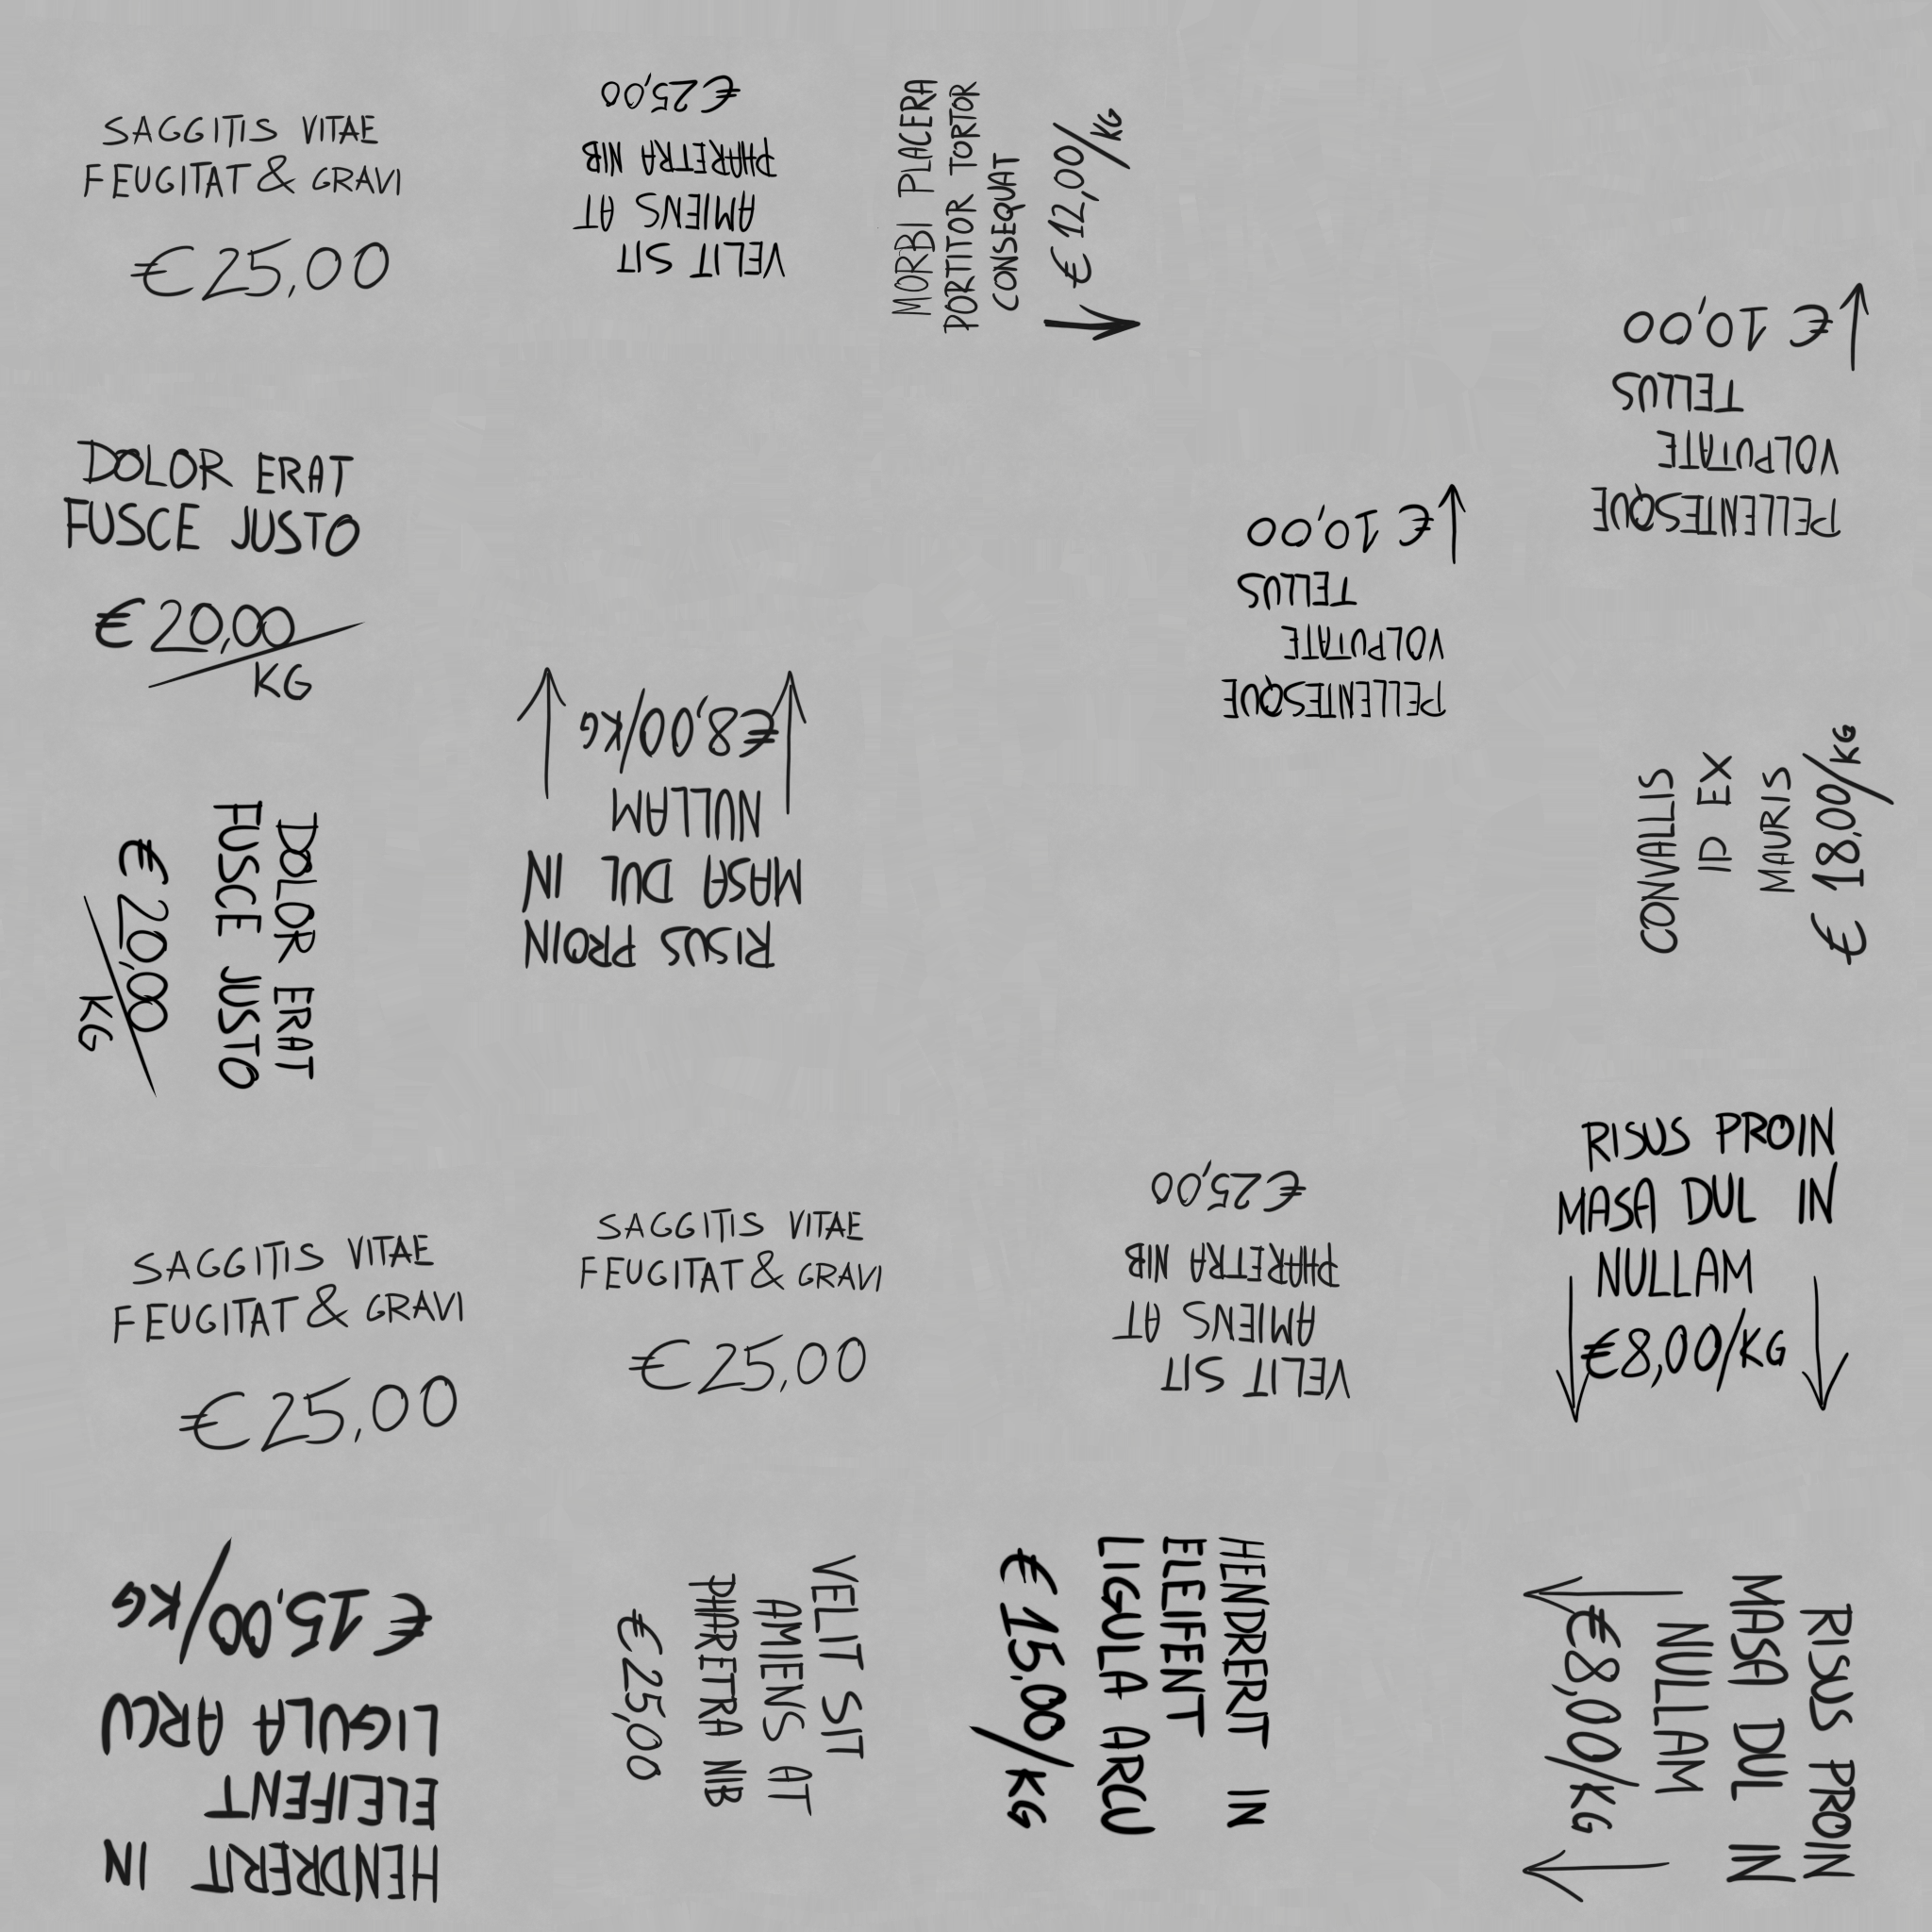 SAGGITIS VITAE
FEUGITAT & GRAVI
€25,00
VELIT SIT
AMIENS AT
PHARETRA NIB
€25,00
MORBI PLACERA
PORTITOR TORTOR
CONSEQUAT
€12,00/KG
PELLENTESQUE
VOLPUTATE
TELLUS
€ 10,00
DOLOR ERAT
FUSCE JUSTO
€20,00
KG
PELLENTESQUE
VOLPUTATE
TELLUS
€ 10,00
RISUS PROIN
MASA DUL IN
NULLAM
€8,00/KG
CONVALLIS
ID EX
MAURIS
€ 18,00/KG
DOLOR ERAT
FUSCE JUSTO
€20,00
KG
RISUS PROIN
MASA DUL IN
NULLAM
€8,00/KG
SAGGITIS VITAE
FEUGITAT & GRAVI
€25,00
SAGGITIS VITAE
FEUGITAT & GRAVI
€25,00
VELIT SIT
AMIENS AT
PHARETRA NIB
€25,00
HENDRERIT IN
ELEIFENT
LIGULA ARCU
€ 15,00/KG
VELIT SIT
AMIENS AT
PHARETRA NIB
€25,00
HENDRERIT IN
ELEIFENT
LIGULA ARCU
€ 15,00/KG
RISUS PROIN
MASA DUL IN
NULLAM
€8,00/KG